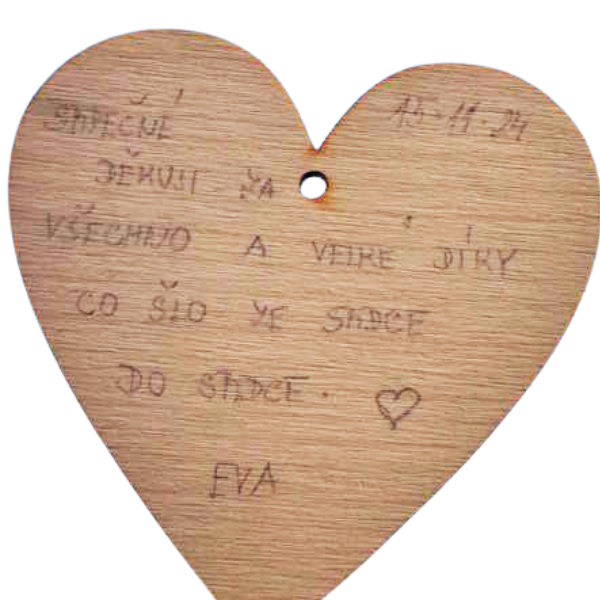 15.11.24
SRDEČNĚ
DĚKUJI ZA
VŠECHNO A VELKÉ DÍKY
CO ŠLO ZE SRDCE
DO SRDCE. ♡
EVA